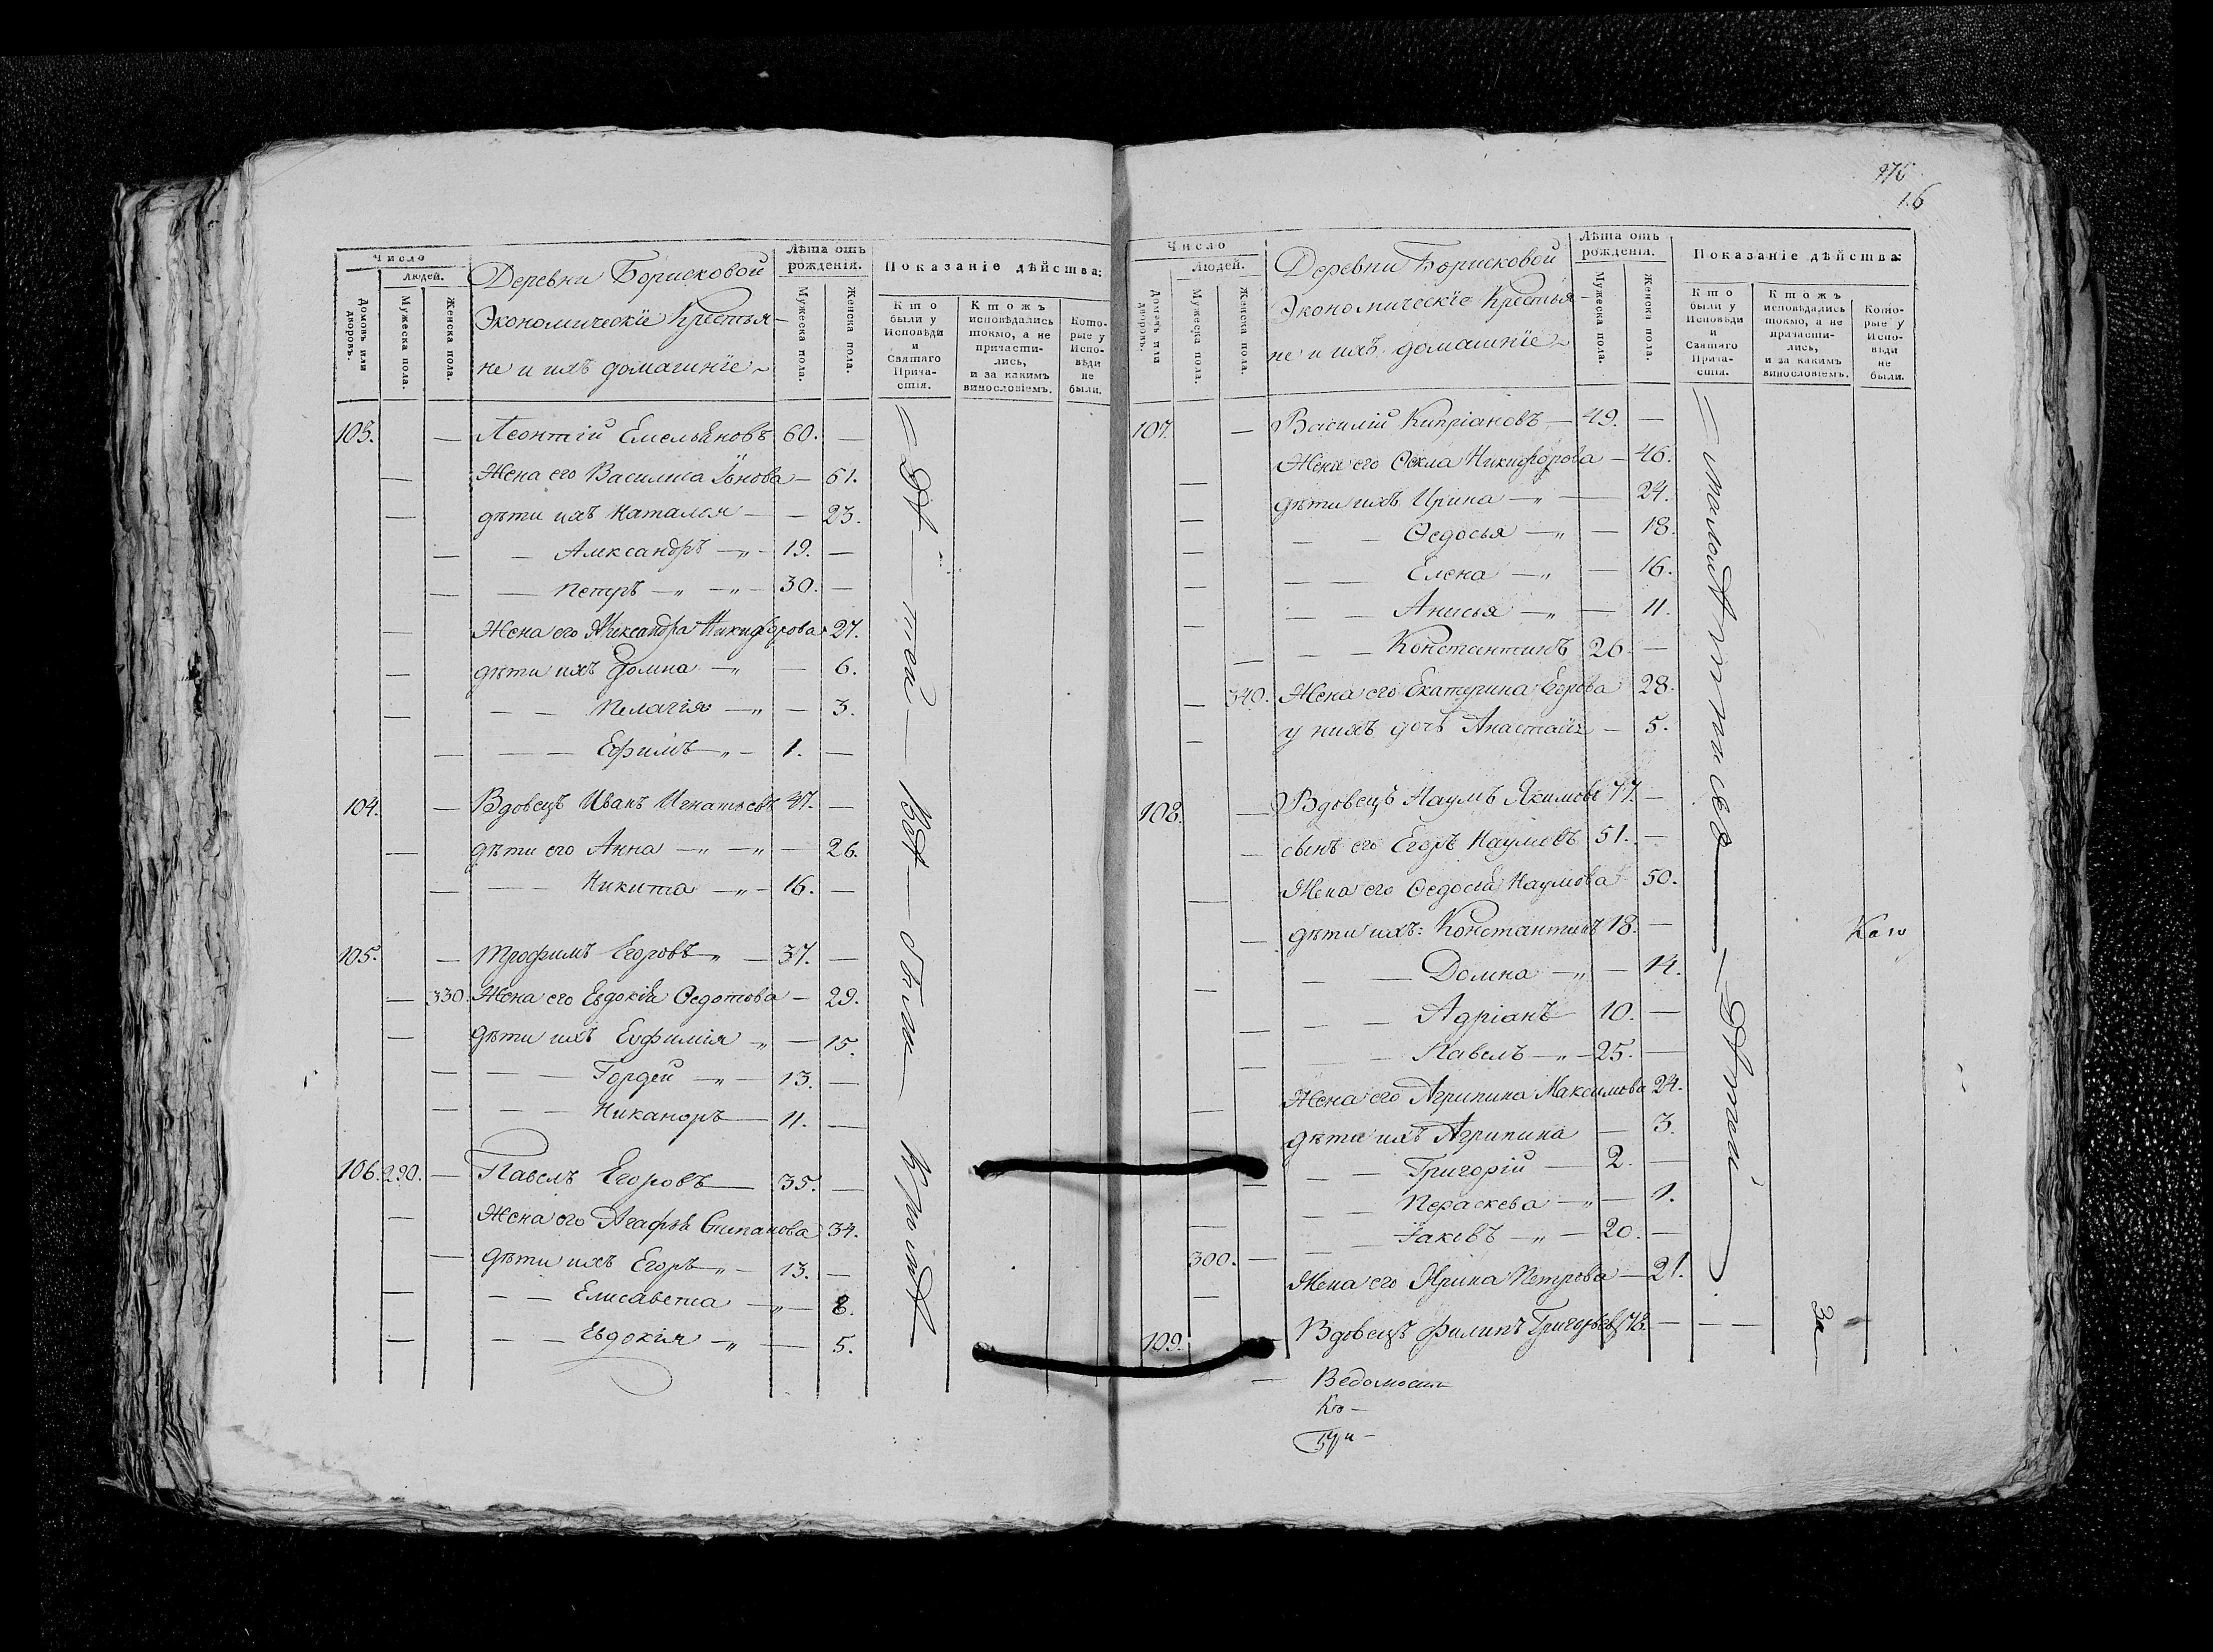 Число
Людей.
Домовъ или дворовъ.
Мужеска пола.
Женска пола.
Деревни Борисковой
Экономическіе Крестья-
не и ихъ домашніе
Лѣта отъ рожденія.
Мужеска пола.
Женска пола.
Показаніе дѣйства:
Кто были у Исповѣди и Святаго Причастія.
Ктожъ исповѣдались токмо, а не причастились, и за какимъ винословіемъ.
Которые у Исповѣди не были.
103. — Леонтій Емельяновъ 60. —
— Жена его Василиса — 61.
— дѣти ихъ Наталья — — 23.
— — Александръ — 19. —
— — Петръ — 30. —
— Жена его Александра Никифорова 27.
— дѣти ихъ Домна — — 6.
— — — Пелагія — — 3.
— — — Ефимъ — 1. —
104. — Вдовецъ Иванъ Игнатьевъ 47. —
— дѣти его Анна — — 26.
— — — Никита — 16. —
105. — Трофимъ Егоровъ — 37. —
— 330. Жена его Евдокія Ѳедотова — 29.
— дѣти ихъ Евфимія — 15.
— — — Гордей — 13. —
— — — Никаноръ — 11. —
106. 290. — Павелъ Егоровъ — 35. —
— Жена его Агафья Степанова 34.
— дѣти ихъ Егоръ — 13. —
— — — Елисавета — 8.
— — — Евдокія — — 5.
16
Число
Людей.
Домовъ или дворовъ.
Мужеска пола.
Женска пола.
Деревни Борисковой
Экономическіе Крестья-
не и ихъ домашніе
Лѣта отъ рожденія.
Мужеска пола.
Женска пола.
Показаніе дѣйства:
Кто были у Исповѣди и Святаго Причастія.
Ктожъ исповѣдались токмо, а не причастились, и за какимъ винословіемъ.
Которые у Исповѣди не были.
107. — Василій Кипріановъ — 49. —
— Жена его Ѳекла Никифорова — 46.
— дѣти ихъ Ирина — — 24.
— — — Ѳедосья — — 18.
— — — Елена — — 16.
— — — Анисья — — 11.
— — — Константинъ 26. —
— 340. Жена его Екатерина Егорова 28.
— у нихъ дочь Анастасія — 5.
108. — Вдовецъ Наумъ Якимовъ 77. —
— сынъ его Егоръ Наумовъ 51. —
— Жена его Ѳедосья Наумова 50.
— дѣти ихъ: Константинъ 18. —
— — — Домна — — 14.
— — — Адріанъ 10. —
— — Павелъ — 25. —
— Жена его Агрипина Максимова 24.
— дѣти ихъ Агрипина — 3.
— — Григорій — 2. —
— — — Пераскева — — 1.
300. — — — Іаковъ — 20. —
— Жена его Ирина Петрова — 21.
109. — Вдовецъ Филипъ Григорьевъ —
— Ведомости